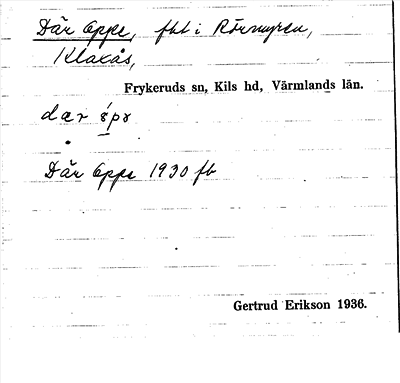 Där Oppe, fbt i Rörmyren,
Klaxås,
Frykeruds sn, Kils hd, Värmlands län.
Där Oppe 1930 fb
Gertrud Erikson 1936.